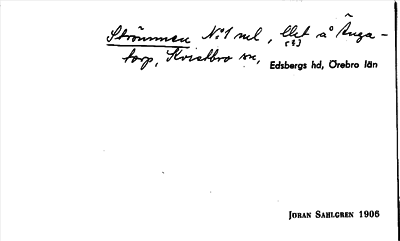 Strömmen No 1 mel, Ålet å Ånga-
[?]
torp, Kvistbro sn, Edsbergs hd, Örebro län
JÖRAN SAHLGREN 1906